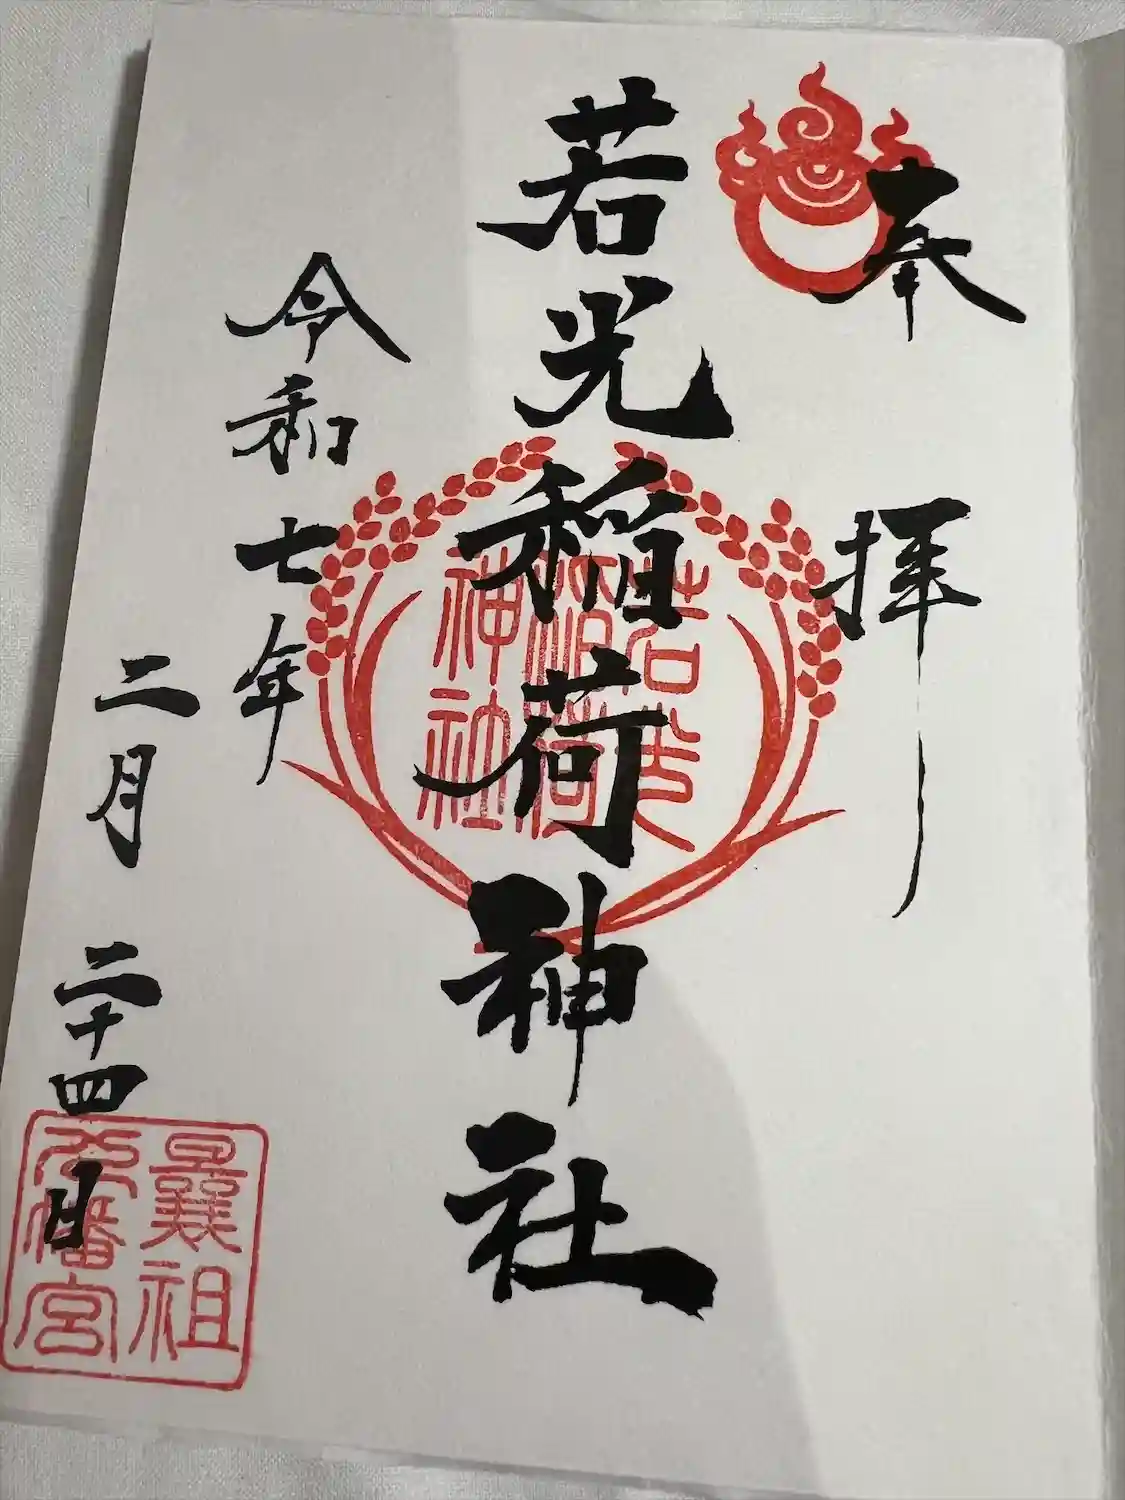 奉拝
若光稲荷神社
若光
稲荷
神社
令和七年
二月二十四日
曩祖
八幡宮